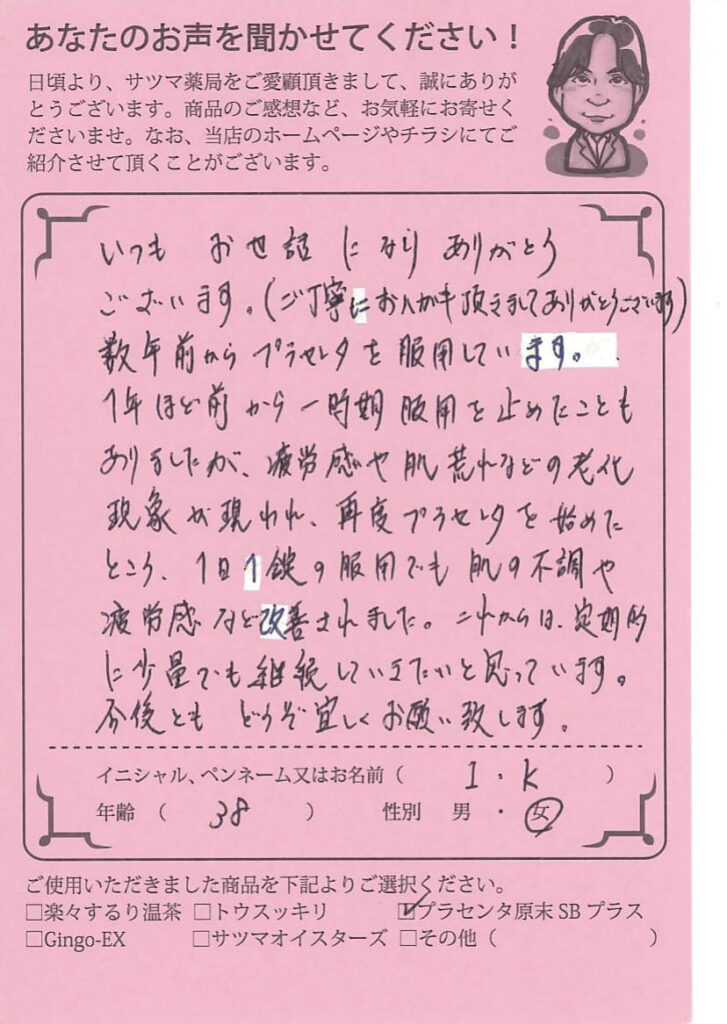 あなたのお声を聞かせてください！
日頃より、サツマ薬局をご愛顧頂きまして、誠にありが
とうございます。商品のご感想など、お気軽にお寄せく
ださいませ。なお、当店のホームページやチラシにてご
紹介させて頂くことがございます。
いつも お世話 になり ありがとう
ございます。(ご丁寧に おハガキ頂きましてありがとうございます)
数年前から プラセンタを服用しています。
1年ほど前から一時期 服用を止めたことも
ありましたが、疲労感や肌荒れなどの老化
現象が現われ、再度プラセンタを始めた
ところ、1日1錠の服用でも肌の不調や
疲労感など改善されました。これからは、定期的
に少量でも継続していきたいと思っています。
今後とも どうぞ宜しくお願い致します。
イニシャル、ペンネーム又はお名前（ I・K ）
年齢 （ 38 ） 性別 男 ・ 女
ご使用いただきました商品を下記よりご選択ください。
□楽々するり温茶 □トウスッキリ ☑プラセンタ原末SBプラス
□Gingo-EX □サツマオイスターズ □その他（ ）